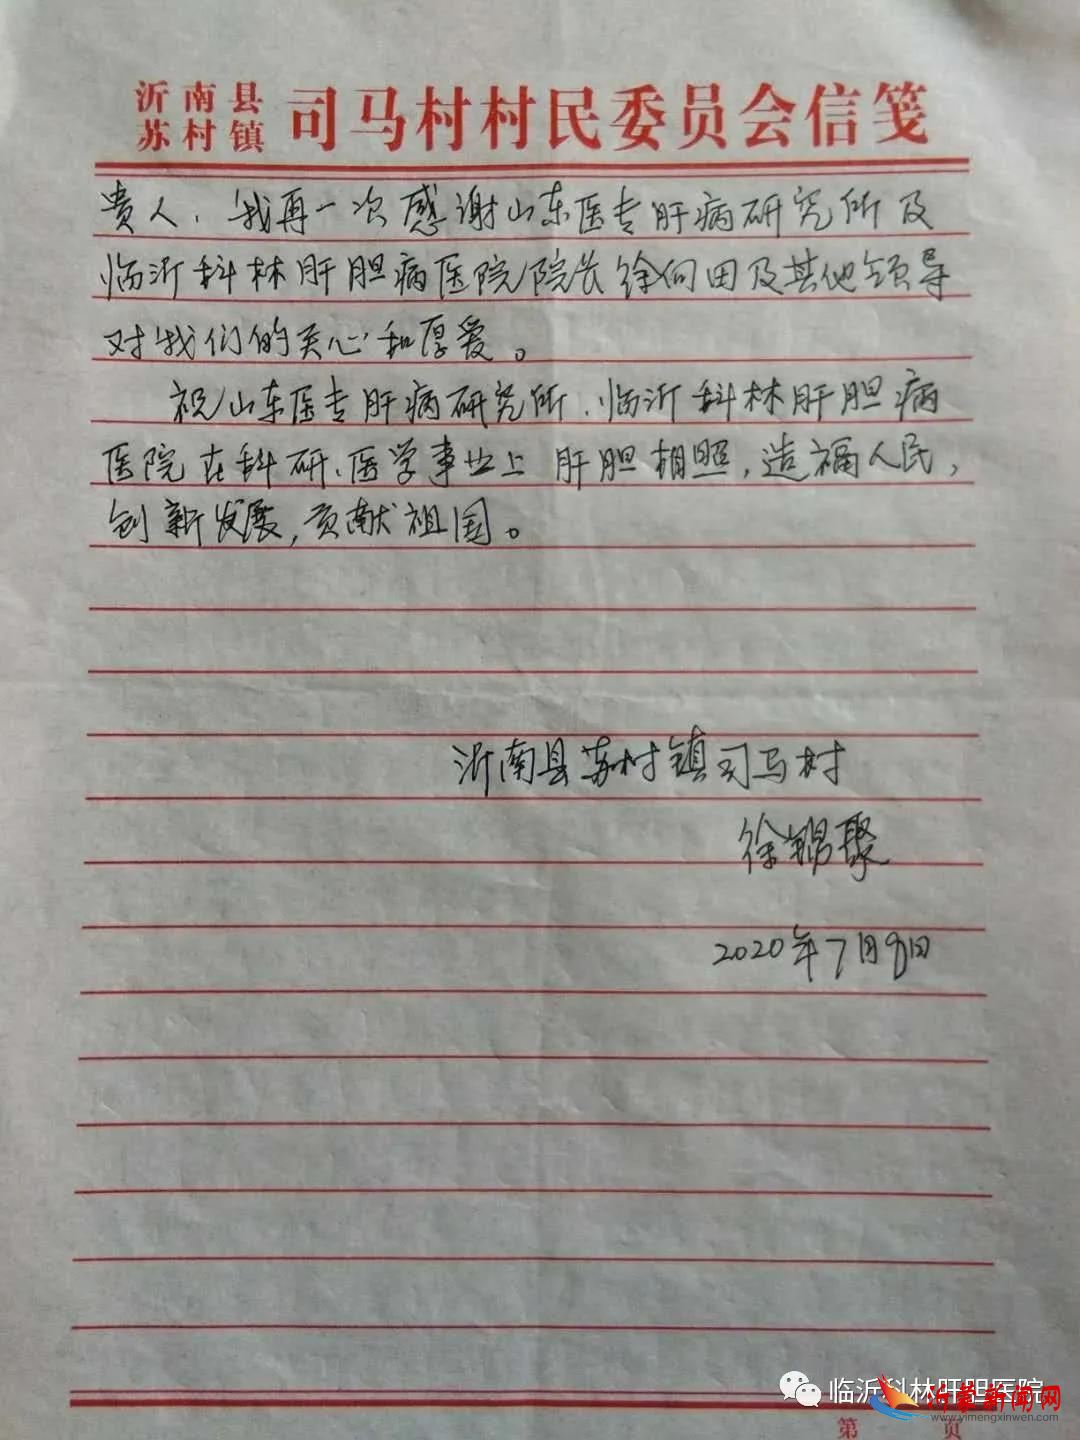 沂南县
苏村镇
司马村村民委员会信笺
贵人，我再一次感谢山东医专肝病研究所及
临沂科林肝胆病医院院长徐向田及其他领导
对我们的关心和厚爱。
祝山东医专肝病研究所、临沂科林肝胆病
医院在科研、医学事业上肝胆相照，造福人民，
创新发展，贡献祖国。
沂南县苏村镇司马村
徐锡聚
2020年7月8日
临沂科林肝胆医院
沂蒙新闻网
www.yimengxinwen.com
第 页